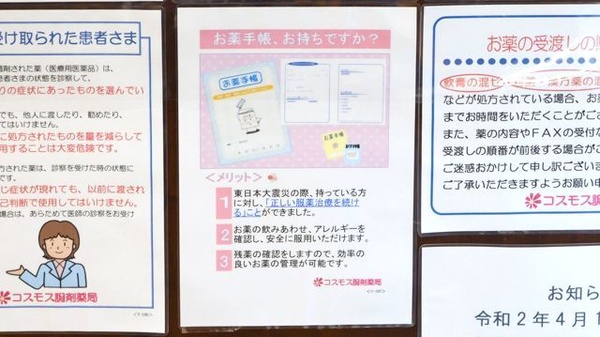 受け取られた患者さま
調剤された薬（医療用医薬品）は、
患者さまの状態を診察して、
りの症状にあったものを選んでい
でも、他人に渡したり、勧めたり、
てはいけません。
に処方されたものを量を減らして
用することは大変危険です。
された薬は、診察を受けた時の状態に
です。
じ症状が現れても、以前に渡され
己判断で使用してはいけません。
場合は、あらためて医師の診察をお受け
コスモス調剤薬局
お薬手帳、お持ちですか？
お薬手帳
お薬手帳
＜メリット＞
1 東日本大震災の際、持っている方
に対し、「正しい服薬治療を続け
る」ことができました。
2 お薬の飲みあわせ、アレルギーを
確認し、安全に服用いただけます。
3 残薬の確認をしますので、効率の
良いお薬の管理が可能です。
コスモス調剤薬局
お薬の受渡しの順
軟膏の混ぜ
漢方薬の混
などが処方されている場合、お
までお時間をいただくことがござ
また、薬の内容やFAXの受付な
受渡しの順番が前後する場合がご
ご迷惑おかけして申し訳ござい
ご了承いただきますようお願い申
コスモス調剤薬局
お知ら
令和2年4月1